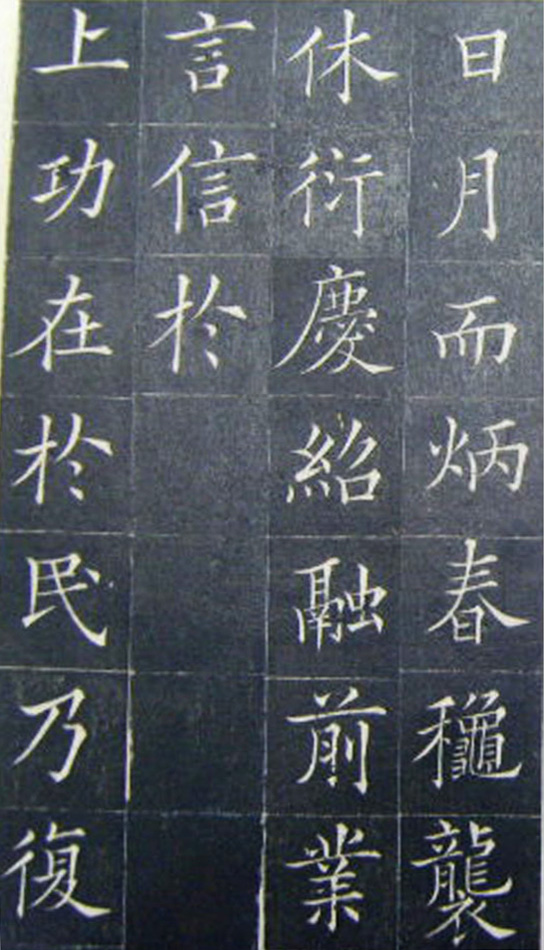 日月而炳春穐襲
休衍慶紹融前業
言信於
上功在於民乃復